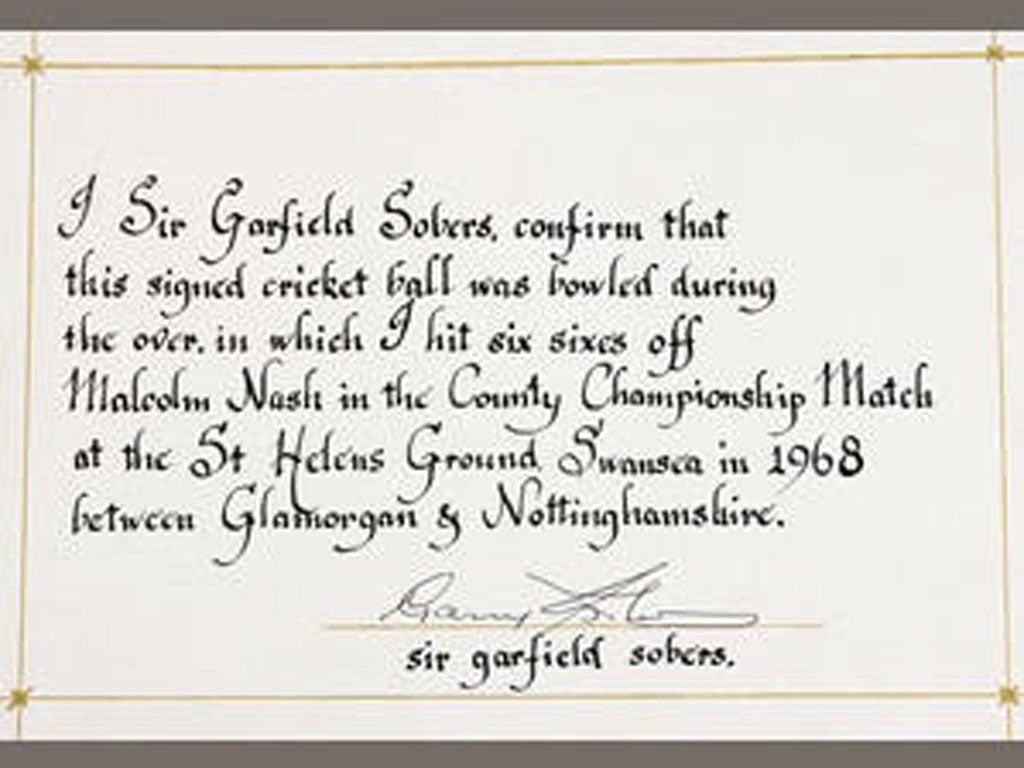 I Sir Garfield Sobers, confirm that
this signed cricket ball was bowled during
the over, in which I hit six sixes off
Malcolm Nash in the County Championship Match
at the St Helens Ground Swansea in 1968
between Glamorgan & Nottinghamshire.
Garry Sobers
sir garfield sobers.